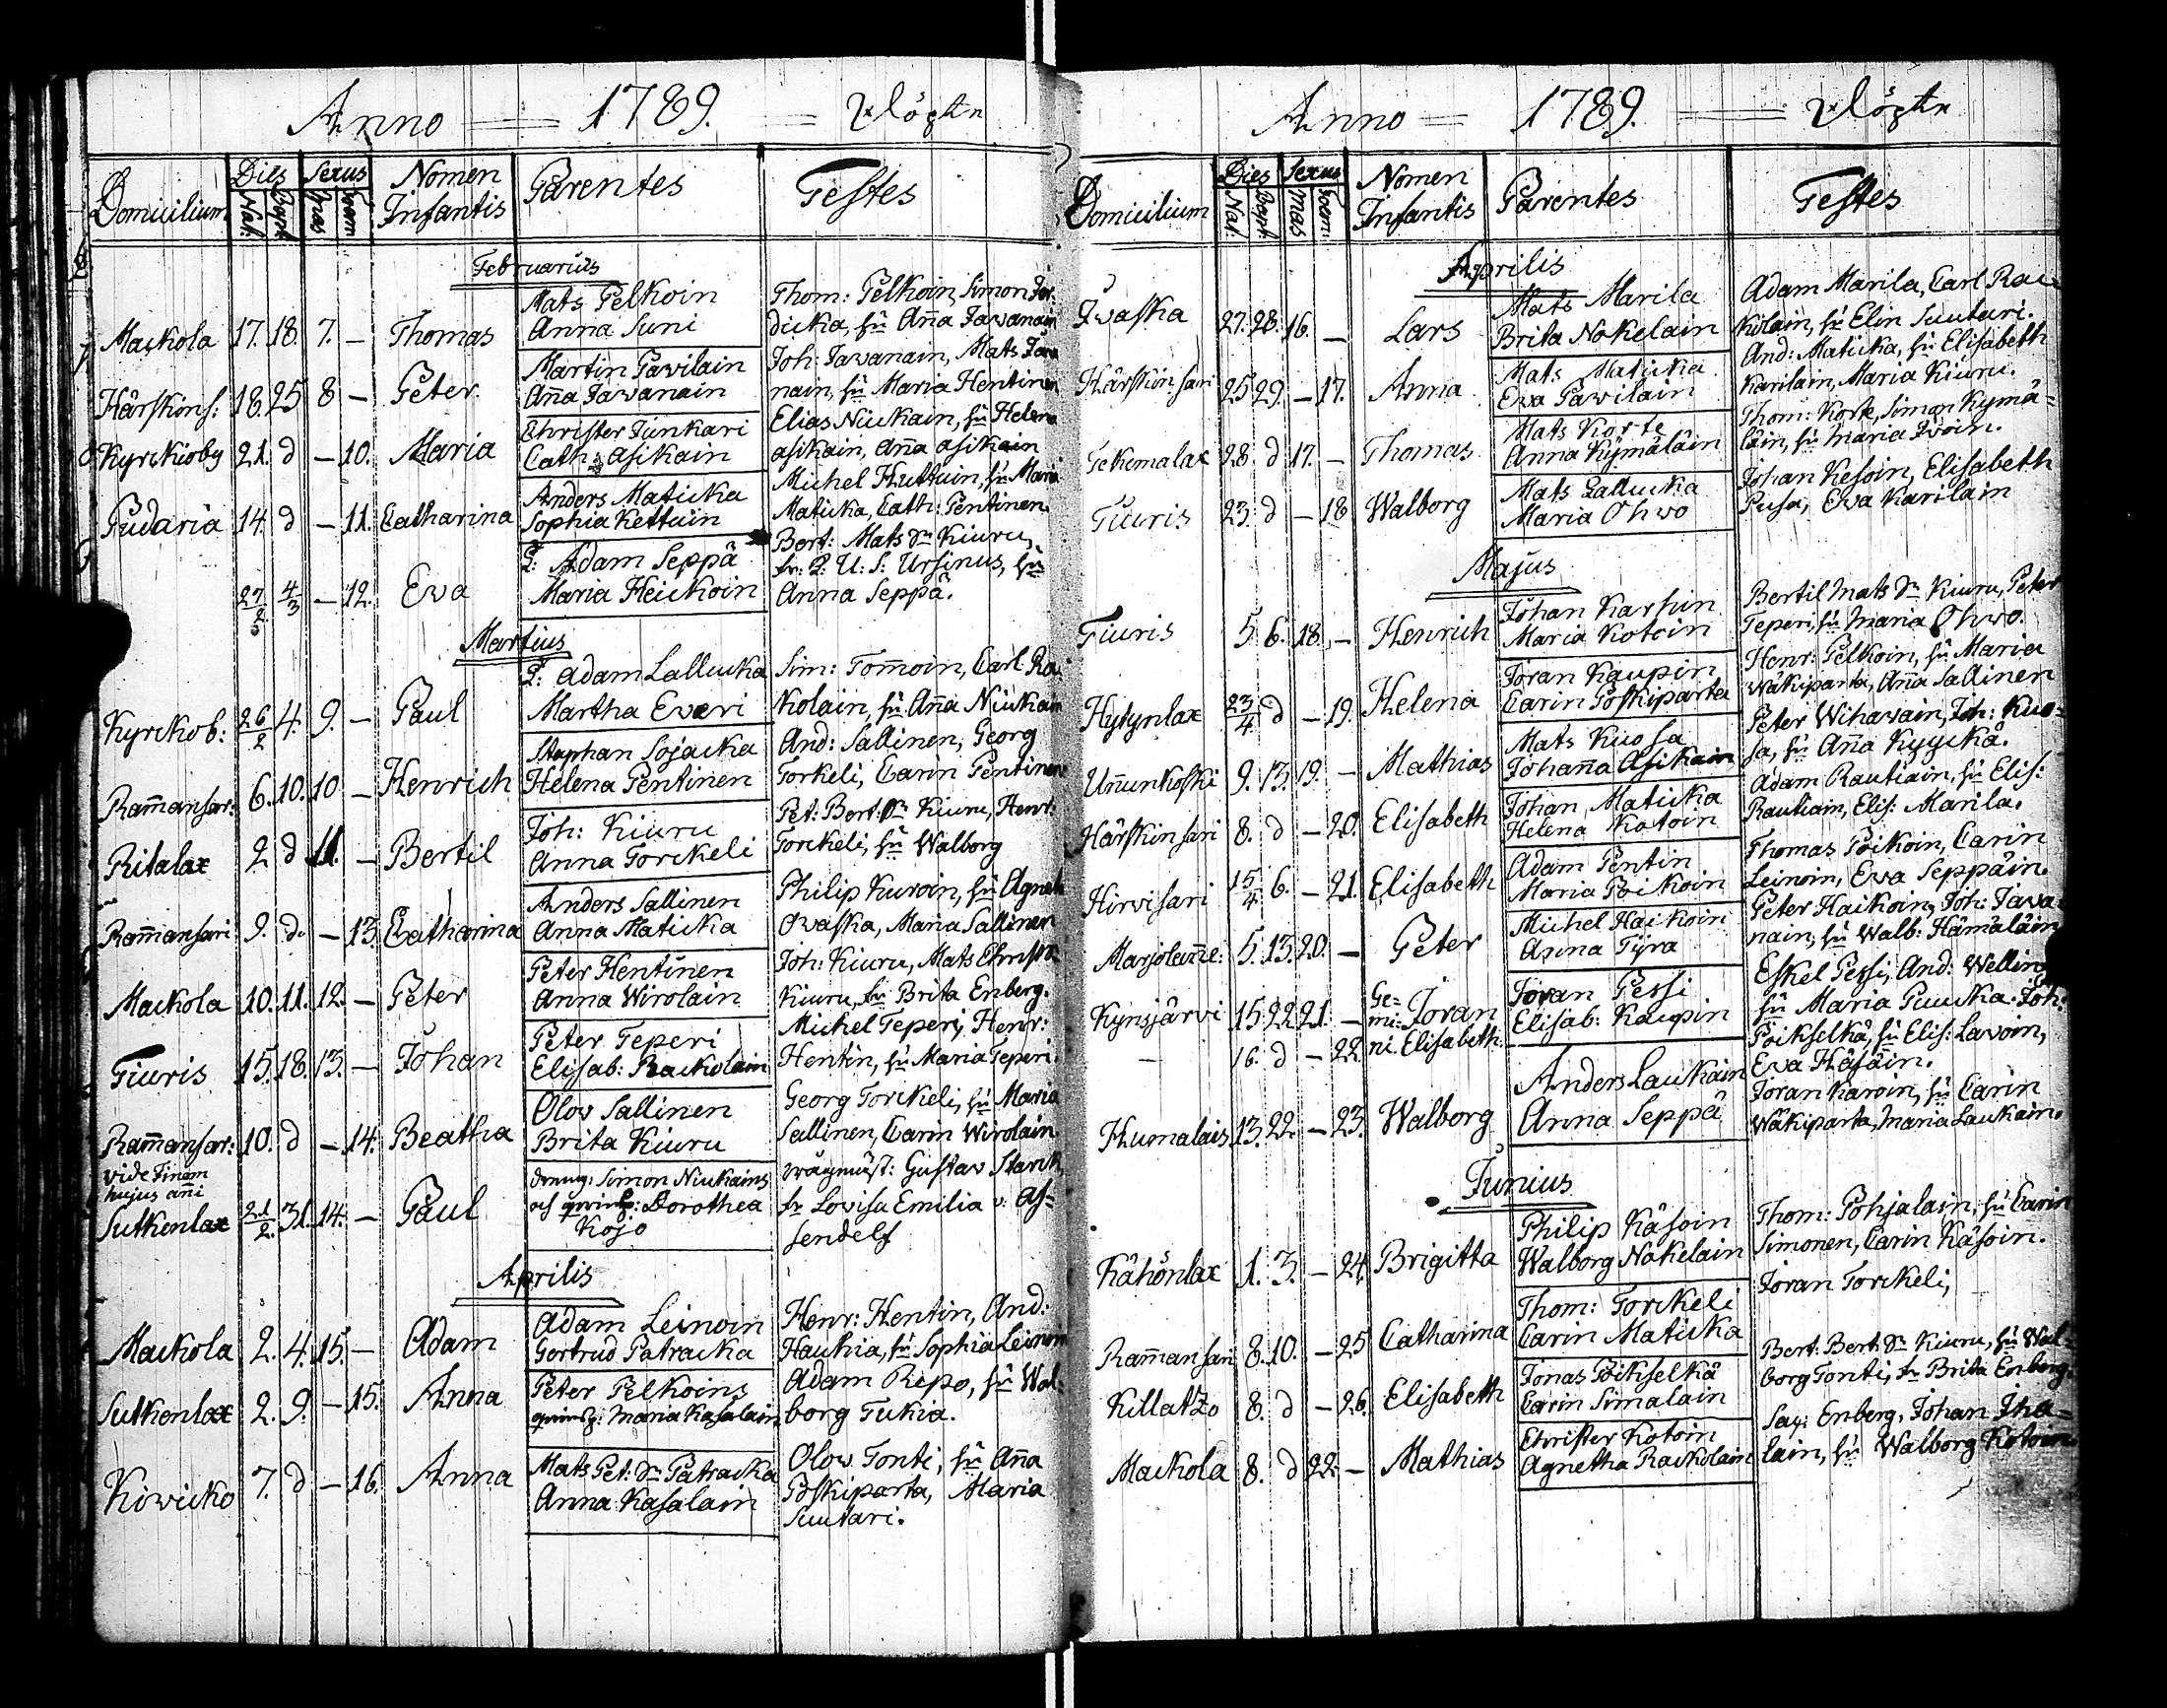 Anno 1789. Döpte
Domicilium Dies Sexus Nomen Infantis Parentes Testes
Nat. Bapt. Mas Foem
Februarius
Mackola 17. 18. 7. — Thomas
Mats Pelkoin
Anna Suni
Thom: Pelkoin, Simon
dicka, hu Anna Tawanain
Härskins: 18. 25 8 — Peter
Martin Pavilain
Anna Tawanain
Joh: Tawanain, Mats Tawa
nain, hu Maria Hentinen
Kyrckioby 21. d — 10. Maria
Christer Junkari
Cath: Asikain
Elias Niukain, hu Helena
Asikain, Anna Asikain
Pudaria 14. d — 11. Catharina
Anders Maticka
Sophia Kettuin
Michel Huttuin, hu Maria
Maticka, Cath: Pentinen.
27/2 4/3 — 12. Eva
Adam Seppä
Maria Heickoin
Bert: Mats Sn Kiuru,
U: S: Ursinus, hu
Anna Seppä.
Martius
Kyrckob: 26/2 4. 9. — Paul
Adam Lallucka
Martha Everi
Sim: Tomoin, Carl Ra
kolain, hu Anna Niukain
Ramansar: 6. 10. 10 — Henrich
Staphan Sojacka
Helena Pentinen
And: Sallinen, Georg
Torkeli, Carin Pentinen
Ritalax 2 d 11. — Bertil
Joh: Kiuru
Anna Torckeli
Pet: Bert: Sn Kiuru, Henr:
Torckeli, hu Walborg
Ramansari 9. d. — 13. Catharina
Anders Sallinen
Anna Maticka
Philip Kuroin, hu Agneta
Owaska, Maria Sallinen
Mackola 10. 11. 12. — Peter
Peter Hentinen
Anna Wirolain
Joh: Kiuru, Mats Christ:
Kiuru, fr Brita Enberg.
Tiuris 15. 18. 13. — Johan
Peter Teperi
Elisab: Rackolain
Michel Teperi, Henr:
Hentin, hu Maria Teperi.
Ramansar: 10. d — 14. Beatha
Olov Sallinen
Brita Kiuru
Georg Torckeli, hu Maria
Sallinen, Carin Wirolain
vide Finem
hujus ani
Sutkenlax 21/2. 31. 14. — Paul
Simon Niukains
och Dorothea
Kojo
Wägmäst: Gustav Starck,
fr Lovisa Emilia v. As=
sendelf
Aprilis
Mackola 2. 4. 15. — Adam
Adam Leinoin
Gertrud Patracka
Henr: Hentin, And:
Haukia, hu Sophia Leinoin
Sutkenlax 2. 9. — 15. Anna
Peter Pelkoins
Maria Kasalain
Adam Repo, hu Wal:
borg Tukia.
Kiwicko 7. d — 16. Anna
Mats Pet: Sn Patracka
Anna Kasalain
Olov Tonti, hu Anna
Poskiparta, Maria
Suutari.
Anno 1789. Döpte
Domicilium Dies Sexus Nomen Infantis Parentes Testes
Nat. Bapt. Mas Foem:
Aprilis
Iwaska 27. 28. 16. — Lars
Mats Marila
Brita Nokelain
Adam Marila, Carl Rac
kolain, hu Elin Suutari.
Härskinsari 25 29. — 17. Anna
Mats Maticka
Eva Pavilain
And: Maticka, hu Elisabeth
Karilain, Maria Kiuru.
Tekemalax 28. d 17. — Thomas
Mats Korte
Anna Kymäläin
Thom: Korte, Simon Kymä=
läin, hu Maria Iwoin.
Tiuris 23. d — 18 Walborg
Mats Lallucka
Maria Ohwo
Johan Kesoin, Elisabeth
Pusa, Eva Karilain
Majus
Tiuris 5. 6. 18. — Henrich
Johan Karhin
Maria Kotoin
Bertil Mats Sn Kiuru, Peter
Teperi, hu Maria Ohwo.
Hytynlax 23/4 d — 19. Helena
Joran Kaupin
Carin Poskiparta
Henr: Pelkoin, hu Maria
Wäkiparta, Anna Sallinen
Unnunkoski 9. 13. 19. — Mathias
Mats Kuosa
Johanna Asikain
Peter Wihavain, Joh: Kuo=
sa, hu Anna Kyyckä.
Härskinsari 8. d — 20. Elisabeth
Johan Maticka
Helena Kotoin
Adam Rautiain, hu Elis:
Rautiain, Elis: Marila.
Hirvisari 15/4 6. — 21. Elisabeth
Adam Pentin
Maria Poikoin
Thomas Poikoin, Carin
Leinoin, Eva Seppäin.
Marjolanne: 5. 13. 20. — Peter
Michel Haikoin
Anna Tyra
Peter Haikoin, Joh: Tawa=
nain, hu Walb: Hämäläin
Kynsjärvi 15. 22 21. — Ge= Joran
mi= — 16. d — 22. ni. Elisabeth.
Joran Pessi
Elisab: Kaupin
Eskel Pessi, And: Welling
hu Maria Puucka. Joh:
Poikselkä, hu Elis: Lavoin,
Eva Häsäin.
Humalais 13. 22. — 23. Walborg
Anders Laukain
Anna Seppä
Joran Karoin, hu Carin
Wäkiparta, Maria Laukain.
Junius
Kähönlax 1. 3. — 24. Brigitta
Philip Käsoin
Walborg Nokelain
Thom: Pohjalain, hu Carin
Simonen, Carin Käsoin.
Ramansari 8. 10. — 25 Catharina
Thom: Torckeli
Carin Maticka
Joran Torckeli,
Killatzo 8. d — 26. Elisabeth
Jonas Poikselkä
Carin Simalain
Bert: Bert: Sn Kiuru, hu Wal=
borg Tonti, fr Brita Enberg.
Mackola 8. d 22 — Mathias
Christer Kotoin
Agnetha Rackolain
Enberg, Johan Iha=
lain, hu Walborg Kotoin